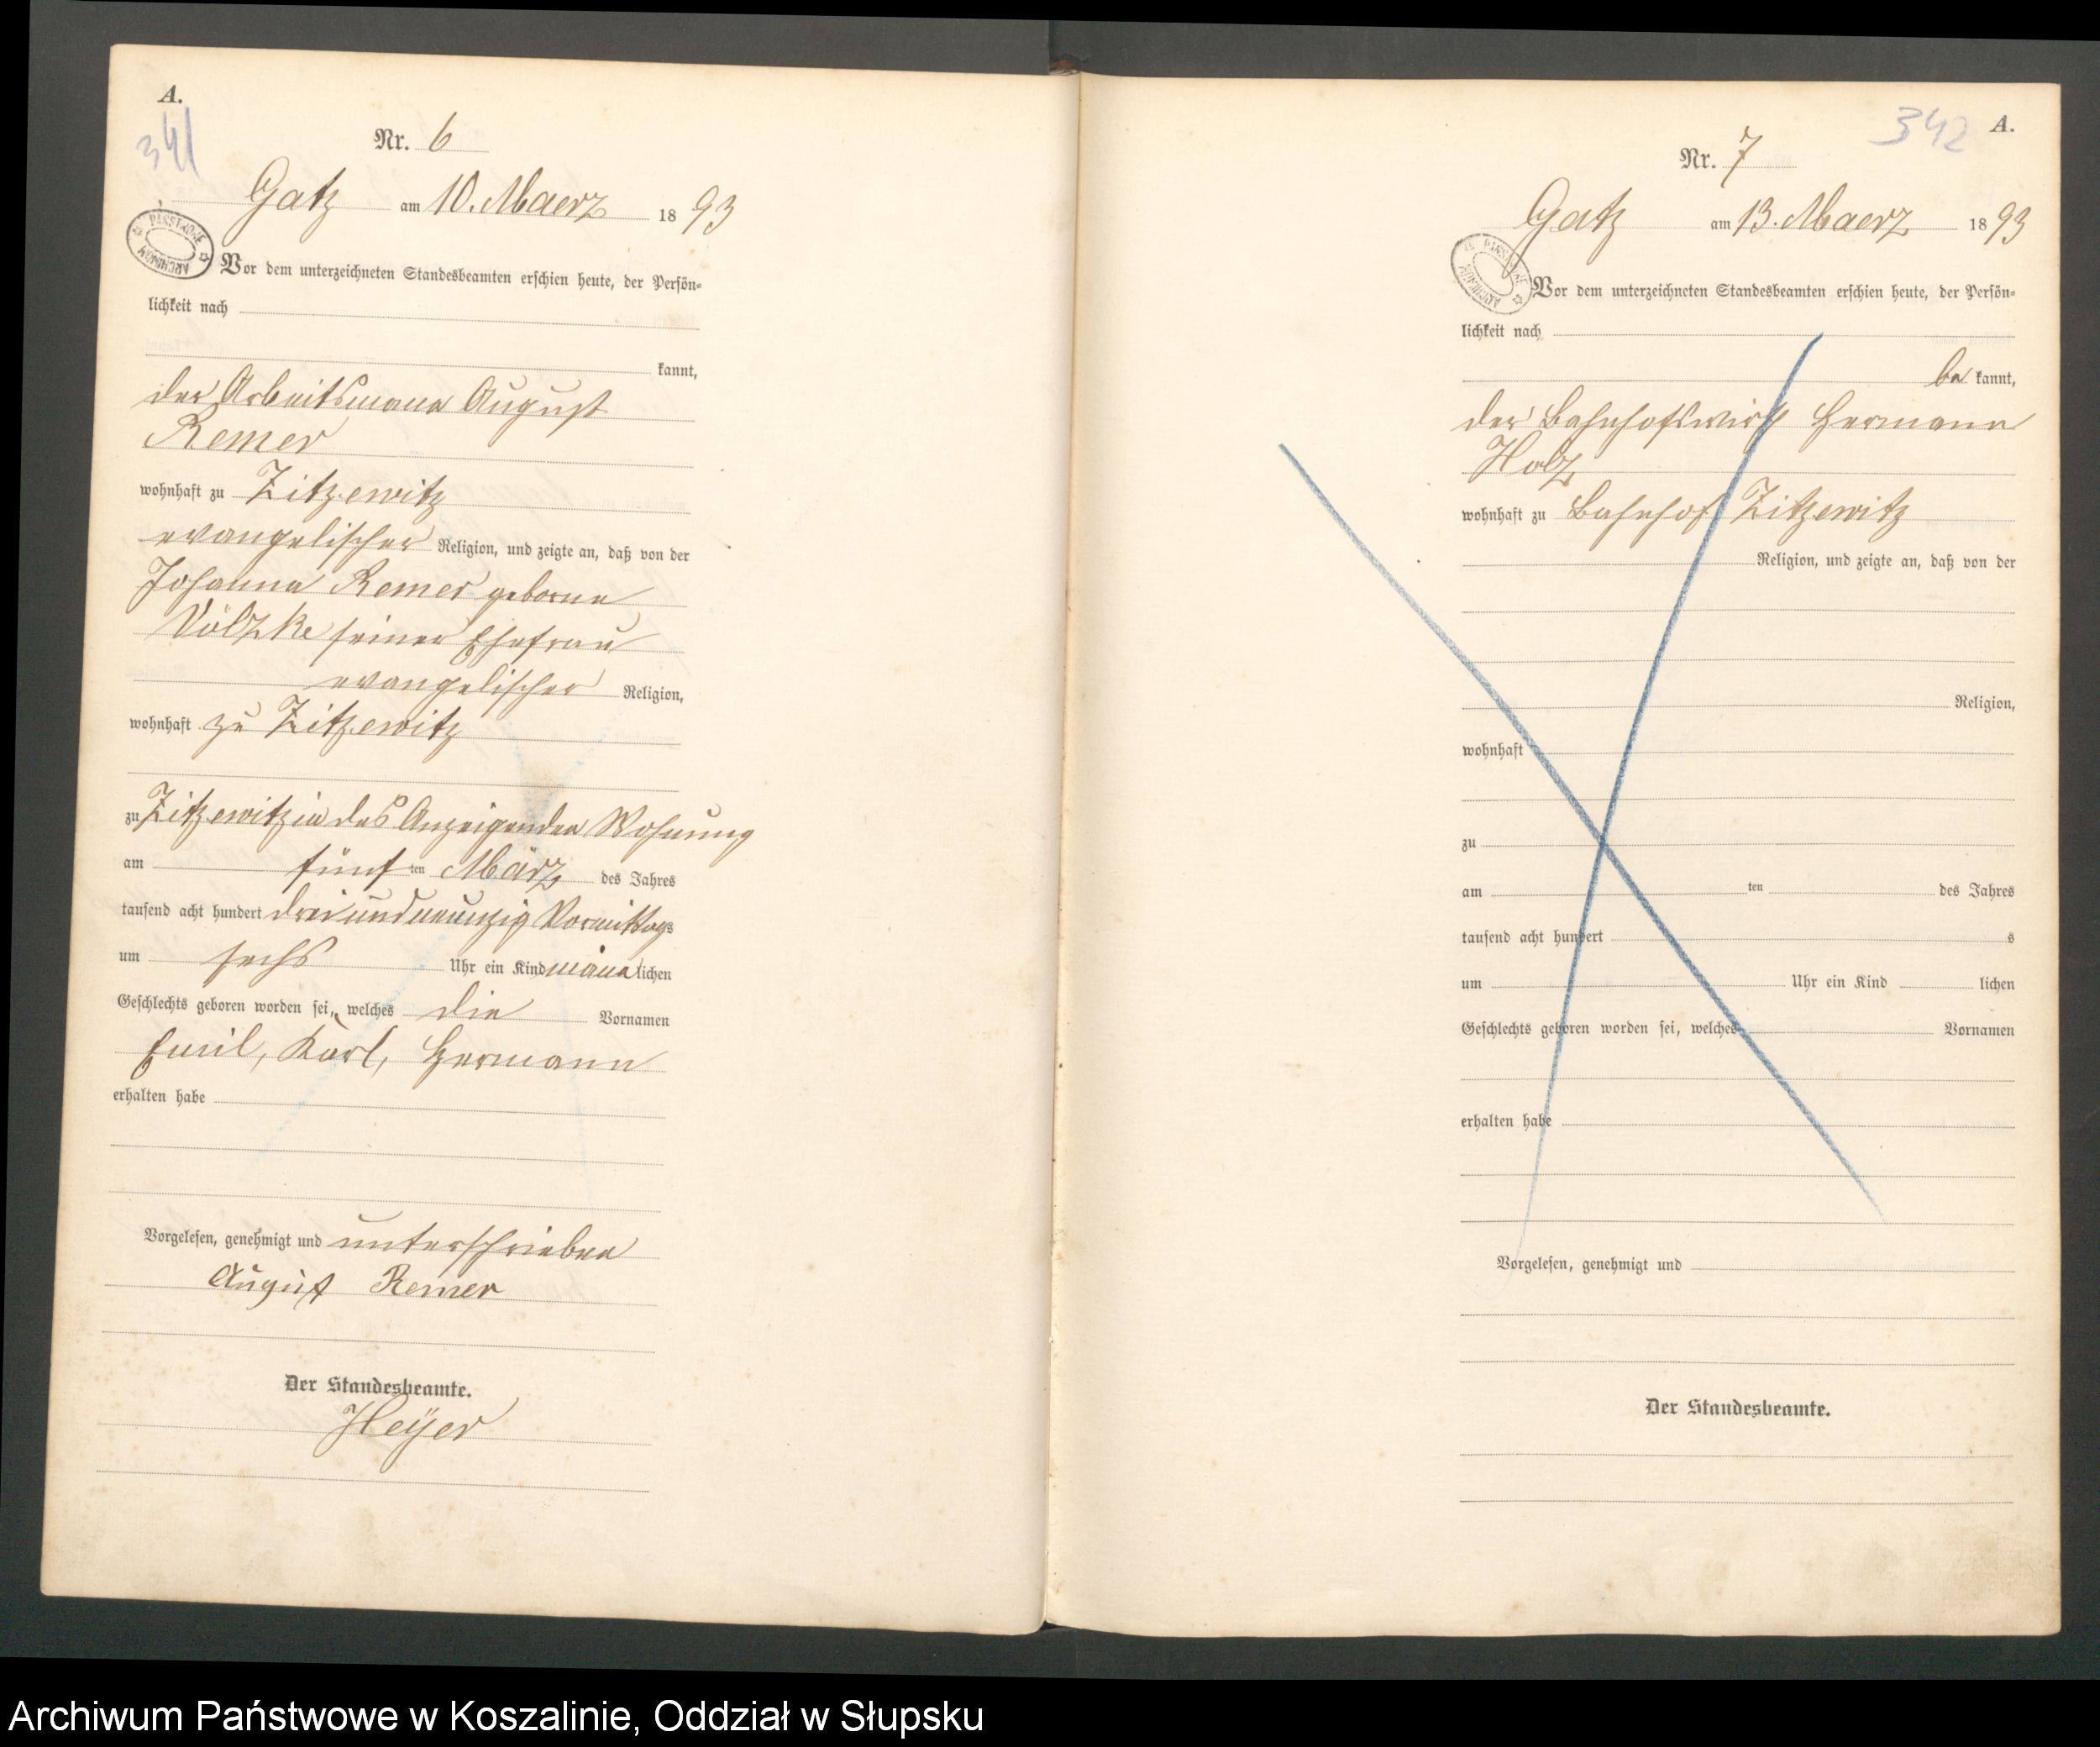 A.
341
Nr. 6
Gatz am 10. Maerz 1893
PAŃSTWOWE ARCHIWUM
Vor dem unterzeichneten Standesbeamten erschien heute, der Persön-
lichkeit nach
kannt,
der Arbeitsmann August
Remer
wohnhaft zu Zitzewitz
evangelischer Religion, und zeigte an, daß von der
Johanna Remer geborne
Völzke seiner Ehefrau
evangelischer Religion,
wohnhaft zu Zitzewitz
zu Zitzewitz in des Anzeigenden Wohnung
am fünf ten März des Jahres
tausend acht hundert dreiundneunzig Vormittags
um sechs Uhr ein Kind männlichen
Geschlechts geboren worden sei, welches die Vornamen
Emil, Karl, Hermann
erhalten habe
Vorgelesen, genehmigt und unterschrieben
August Remer
Der Standesbeamte.
Heÿer
342 A.
Nr. 7
Gatz am 13. Maerz 1893
PAŃSTWOWE ARCHIWUM
Vor dem unterzeichneten Standesbeamten erschien heute, der Persön-
lichkeit nach
be kannt,
der Bahnhofswirth Hermann
Holz
wohnhaft zu Bahnhof Zitzewitz
Religion, und zeigte an, daß von der
Religion,
wohnhaft
zu
am ten des Jahres
tausend acht hundert s
um Uhr ein Kind lichen
Geschlechts geboren worden sei, welches Vornamen
erhalten habe
Vorgelesen, genehmigt und
Der Standesbeamte.
Archiwum Państwowe w Koszalinie, Oddział w Słupsku